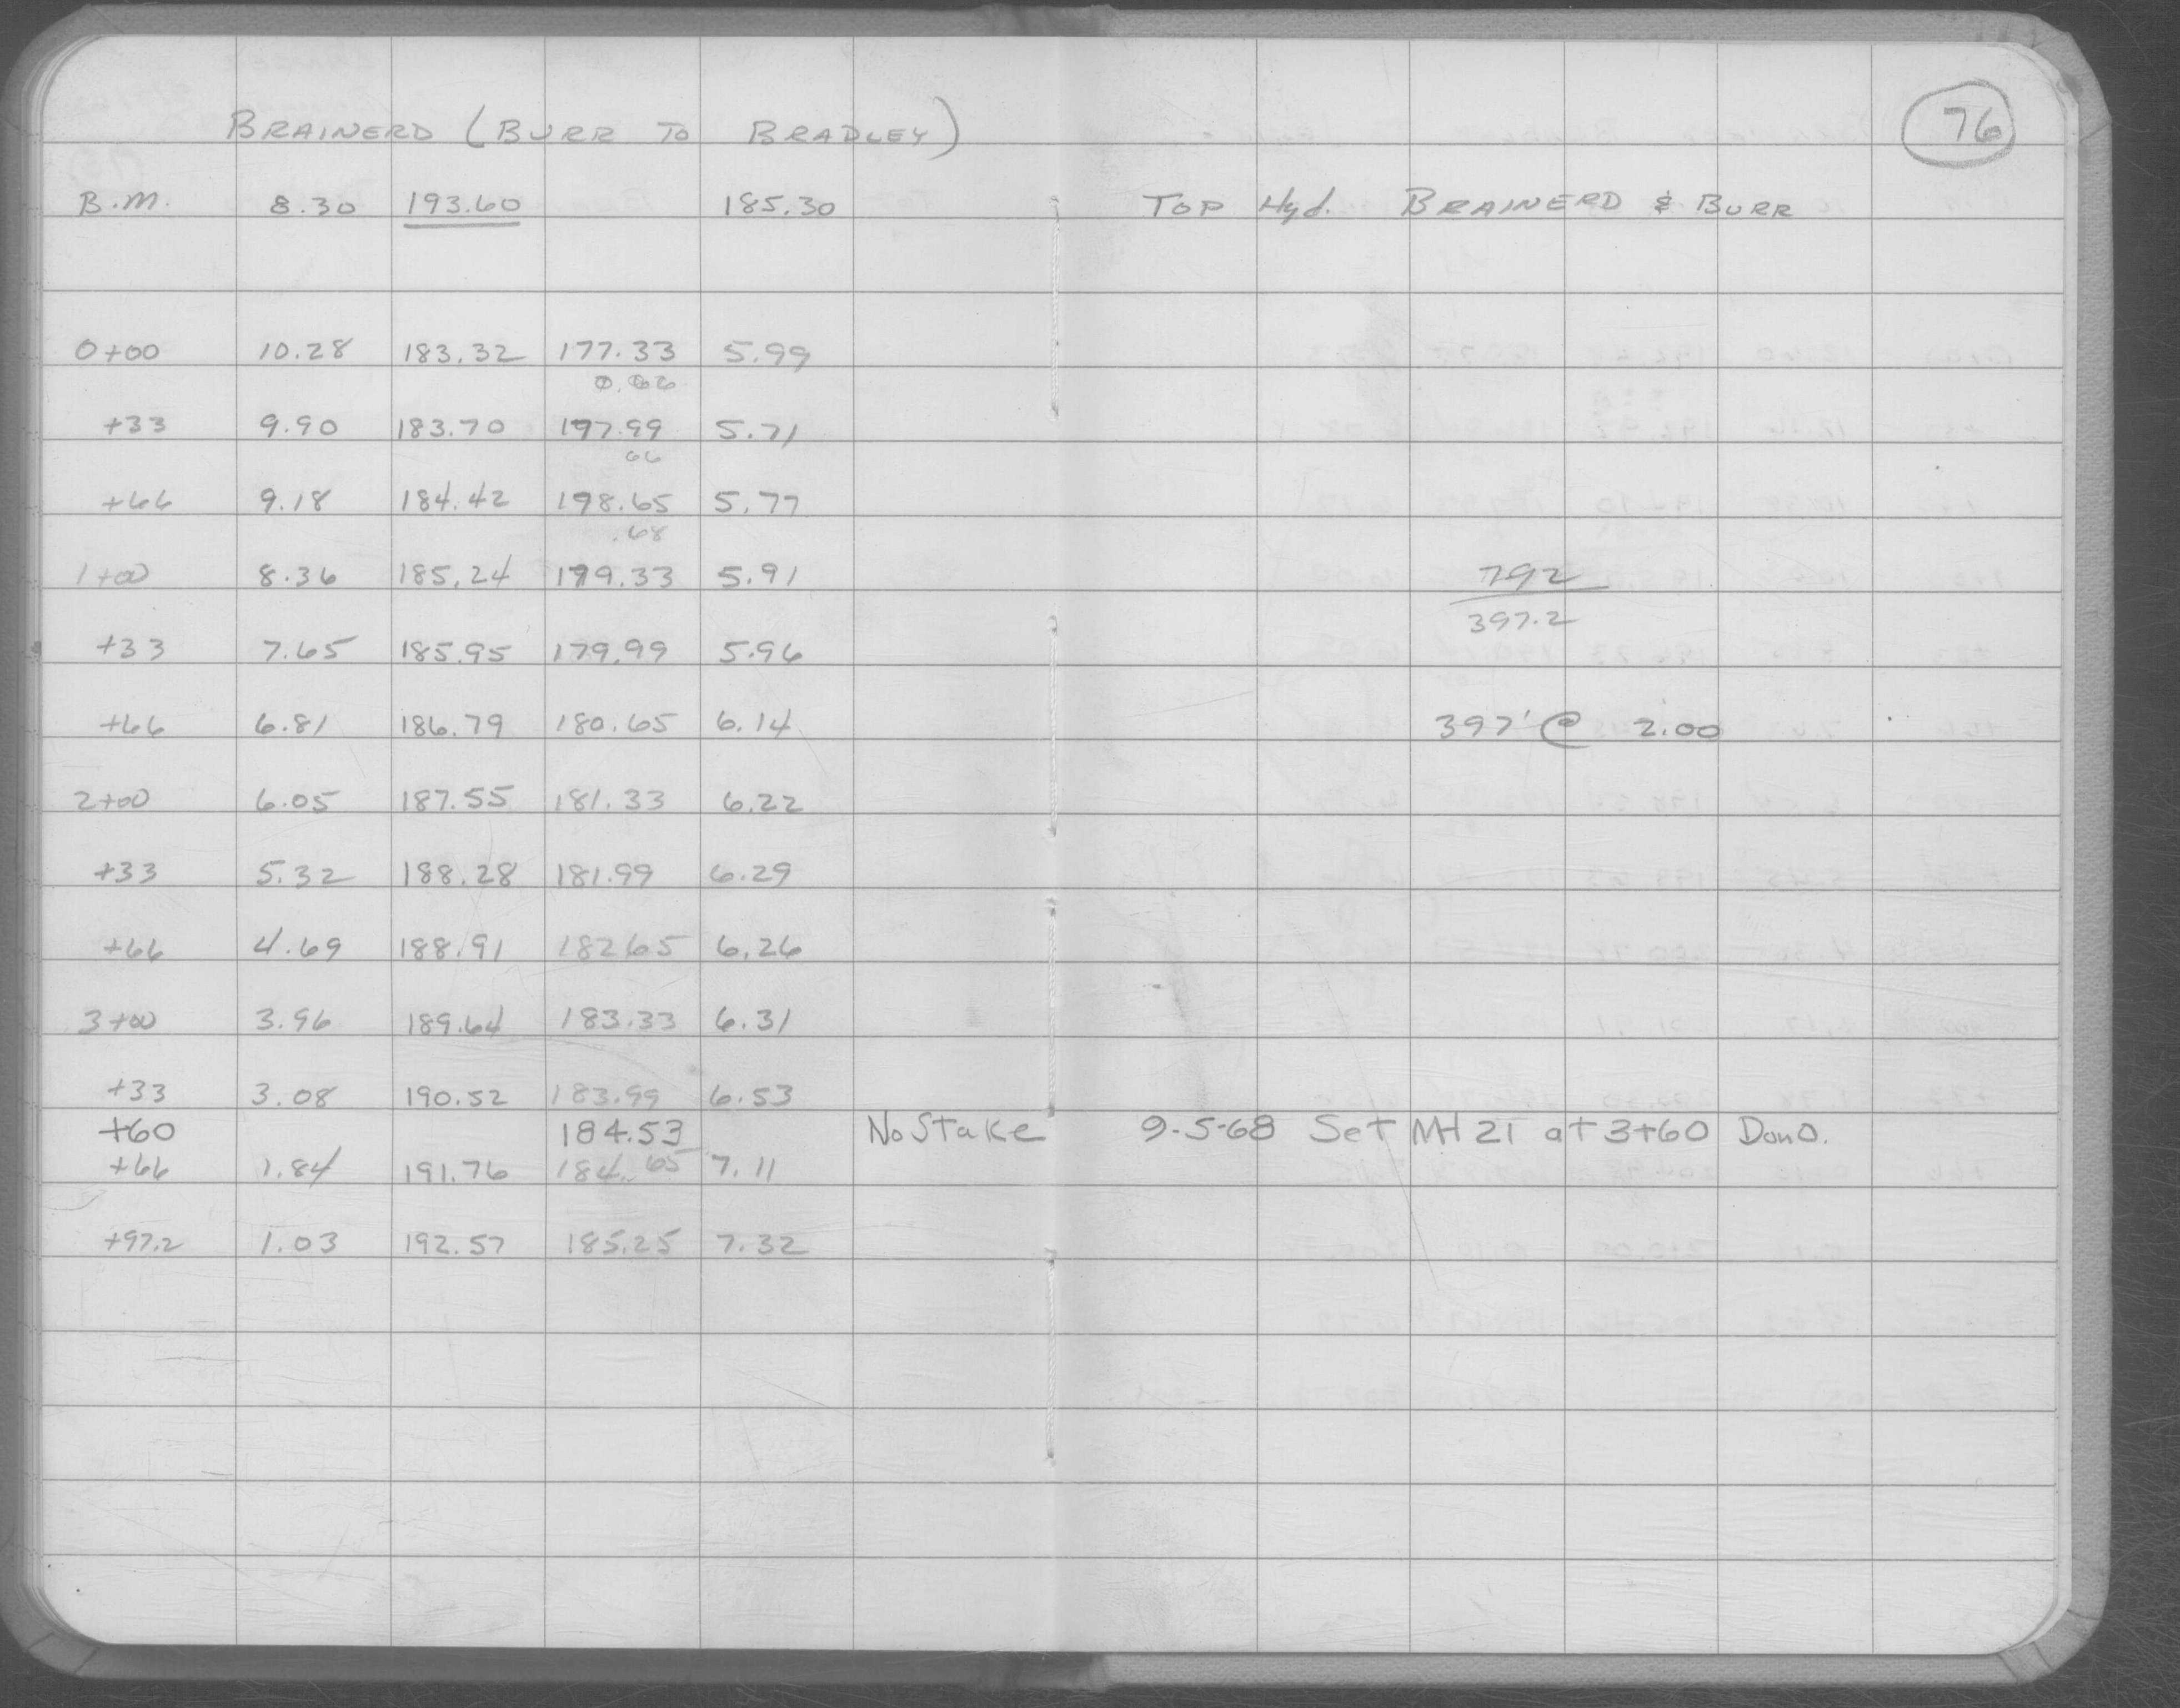 76
BRAINERD (BURR TO BRADLEY)
B.M. 8.30 193.60 185.30 TOP Hyd. BRAINERD & BURR
0+00 10.28 183.32 177.33 5.99
0.66
+33 9.90 183.70 177.99 5.71
66
+66 9.18 184.42 198.65 5.77
.68
1+00 8.36 185.24 179.33 5.91 792
397.2
+33 7.65 185.95 179.99 5.96
+66 6.81 186.79 180.65 6.14 397' @ 2.00
2+00 6.05 187.55 181.33 6.22
+33 5.32 188.28 181.99 6.29
+66 4.69 188.91 18265 6.26
3+00 3.96 189.64 183.33 6.31
+33 3.08 190.52 183.99 6.53
+60 184.53 No Stake 9-5-68 Set MH 21 at 3+60 Don O.
+66 1.84 191.76 184.65 7.11
+97.2 1.03 192.57 185.25 7.32